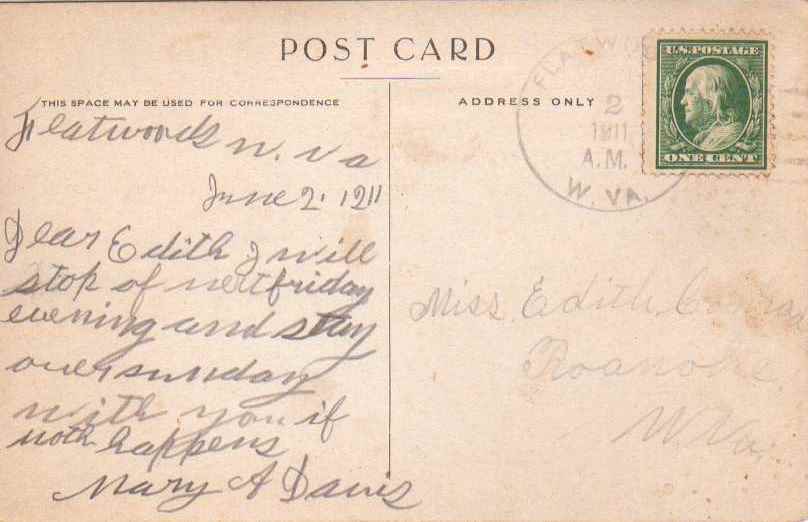 POST CARD
THIS SPACE MAY BE USED FOR CORRESPONDENCE
ADDRESS ONLY
FLATWOO
2
1911
A.M.
W. VA.
U.S. POSTAGE
ONE CENT
Flatwoods W. Va
June 2. 1911
Dear Edith I will
stop of next friday
evening and stay
over sunday
with you if
noth happens
Mary A Davis
Miss Edith
Roanoke
W. Va.